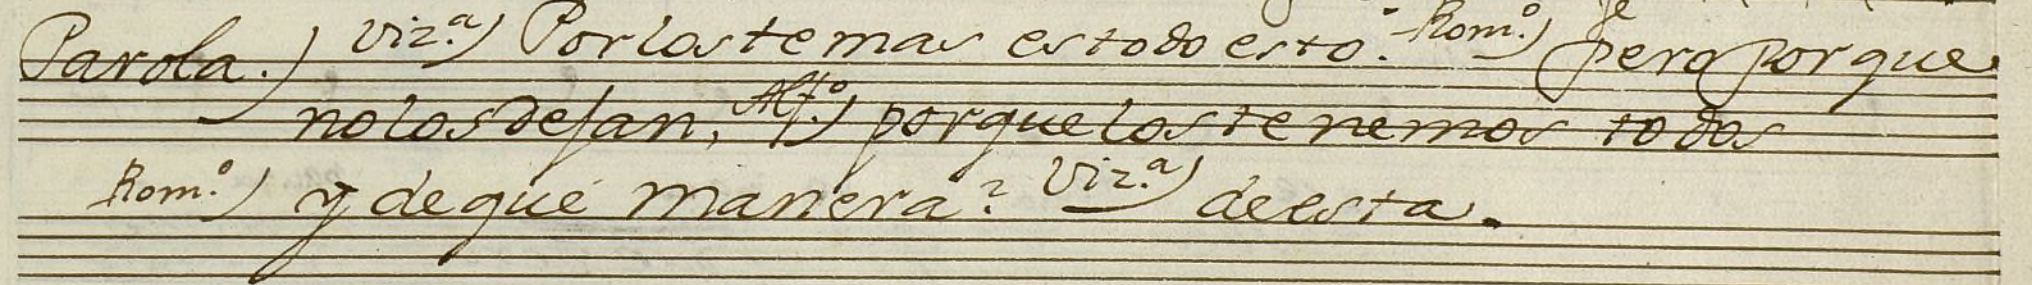 Parola.) Viz.ª) Por los temas es todo esto. Rom.º) pero porque
no los dejan, Alf.º) porque los tenemos todos
Rom.º) y de qué manera? Viz.ª) de esta.